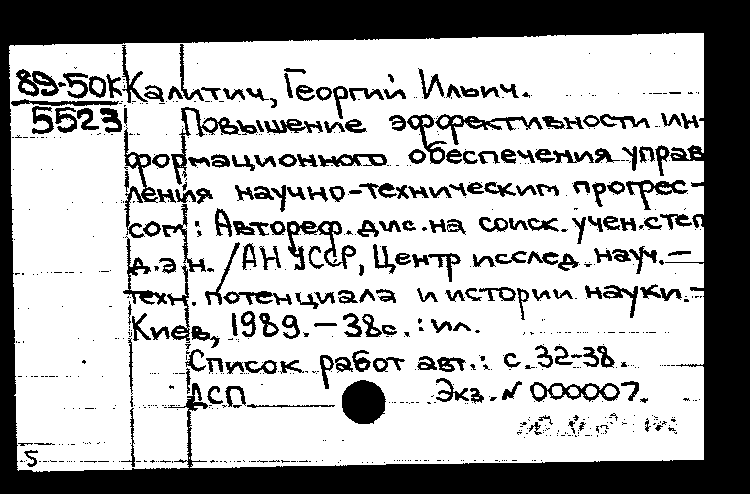 89-50К Калитич, Георгий Ильич.
5523 Повышение эффективности ин-
формационного обеспечения управ
ления научно-техническим прогрес-
сом: Автореф. дис. на соиск. учен. степ
д.э.н. / АН УССР, Центр исслед. науч.-
техн. потенциала и истории науки.-
Киев, 1989. - 38с. : ил.
Список работ авт.: с. 32-38.
ДСП Экз. N 000007.
5